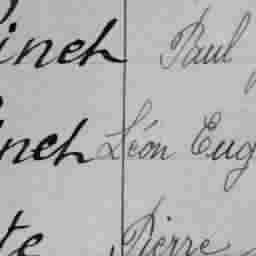 inch Paul
inch Léon Eug
te Pierre